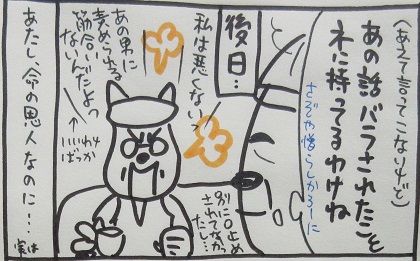 (あえて言ってこないけど)
あの話バラされたことを
ネに持ってるわけね
さぞや憎らしかろーに
後日…
私は悪くないっ
あの男に
責められる
筋合いだよっ
ないんだよっ
↑いいわけ
ばっか
別に口止め
されてなかっ
たし…
あたし、命の恩人なのに…
実は